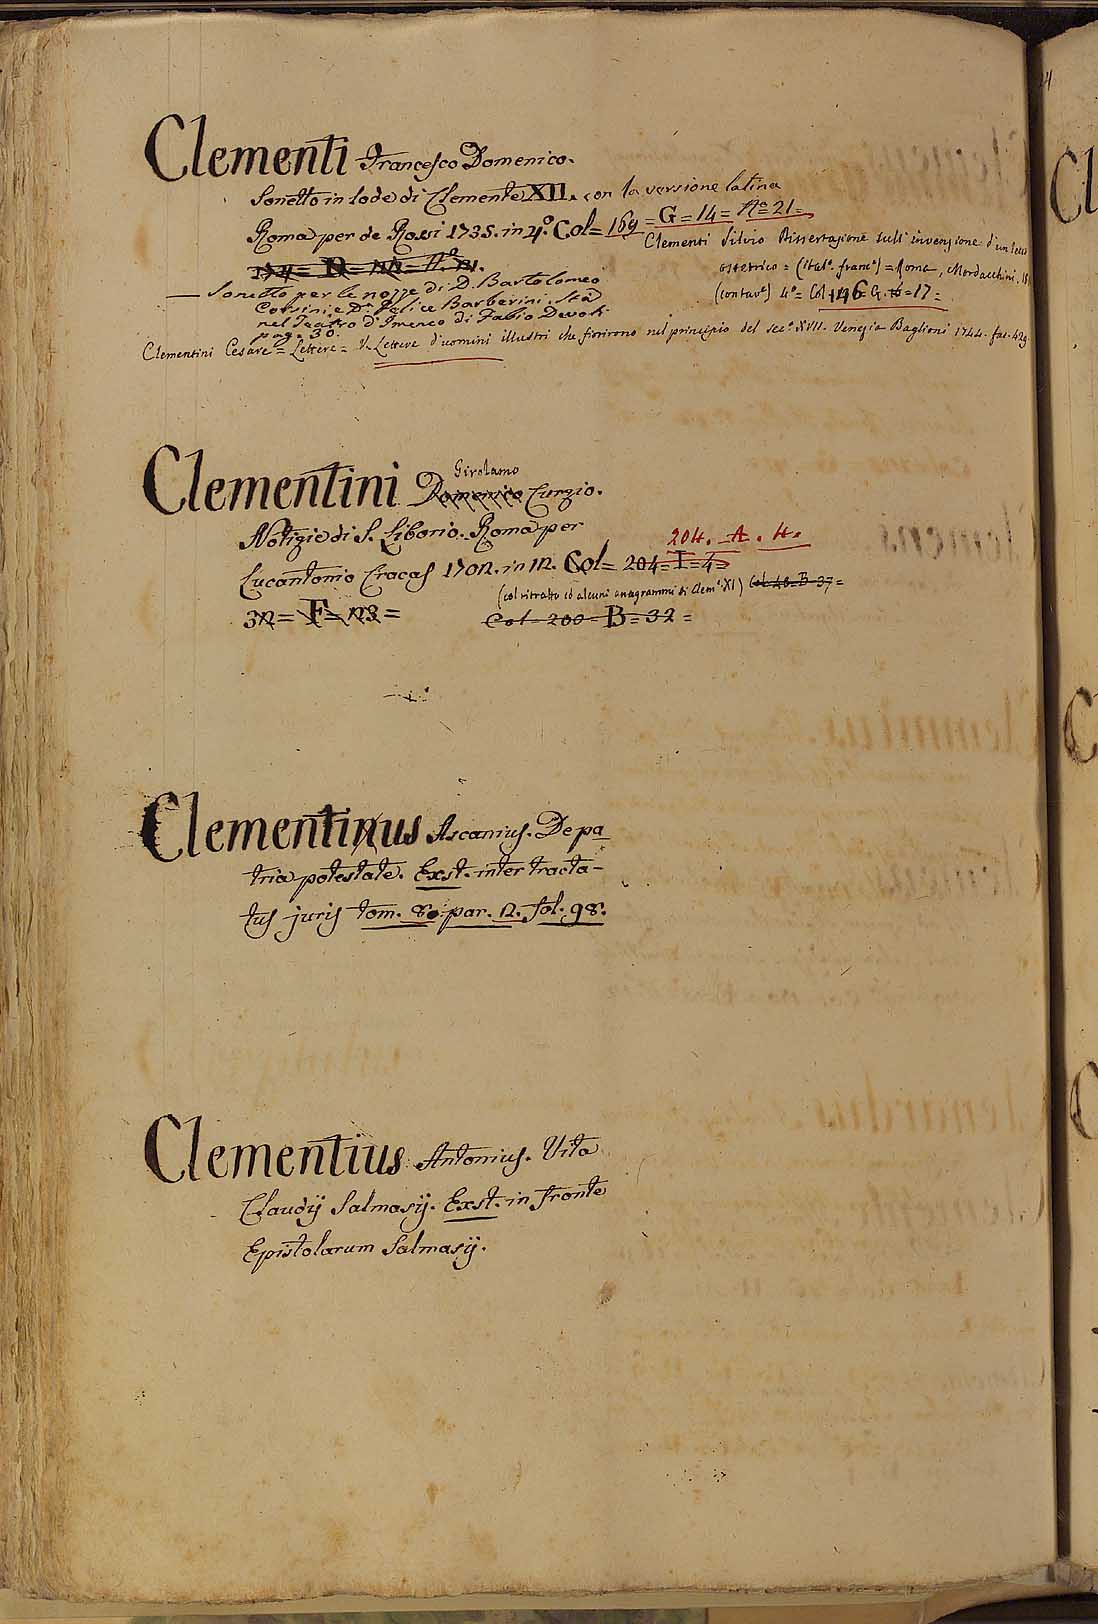 Clementi Francesco Domenico.
Sonetto in lode di Clemente XII. con la versione latina
Roma per de Rossi 1735. in 4.º Col= 169 = G = 14 = Nº 21 =
Clementi Silvio Dissertazione sull' invenzione d'un
ostetrico = (Ital.ª franc.ª) = Roma, Mordacchini, 18
(con tav.ª) 4º = Col 146 G. 6 = 17 =
— Sonetto per le nozze di D. Bartolomeo
Corsini e D.ª Felice Barberini. Stà
nel Teatro d'Imeneo di Fabio Devoti
pag. 30.
Clementini Cesare = Lettere = V. Lettere d'uomini illustri che fiorirono nel principio del sec.º XVII. Venezia Baglioni 1744. fac. 429
Girolamo
Clementini Domenico Curzio.
Notizie di S. Liborio. Roma per
204. A. 4.
Lucantonio Cracas 1702. in 12. Col= 204 = I = 4 =
(col ritratto ed alcuni anagrammi di Clem.e XI) Col. 48 = B = 37 =
32 = F = 123 = Col = 200 = B = 32 =
Clementinus Ascanius. De pa
tria potestate. Exst. inter tracta-
tus juris tom. 8. par. 2. fol. 98.
Clementius Antonius. Vita
Claudij Salmasij. Exst. in fronte
Epistolarum Salmasij.